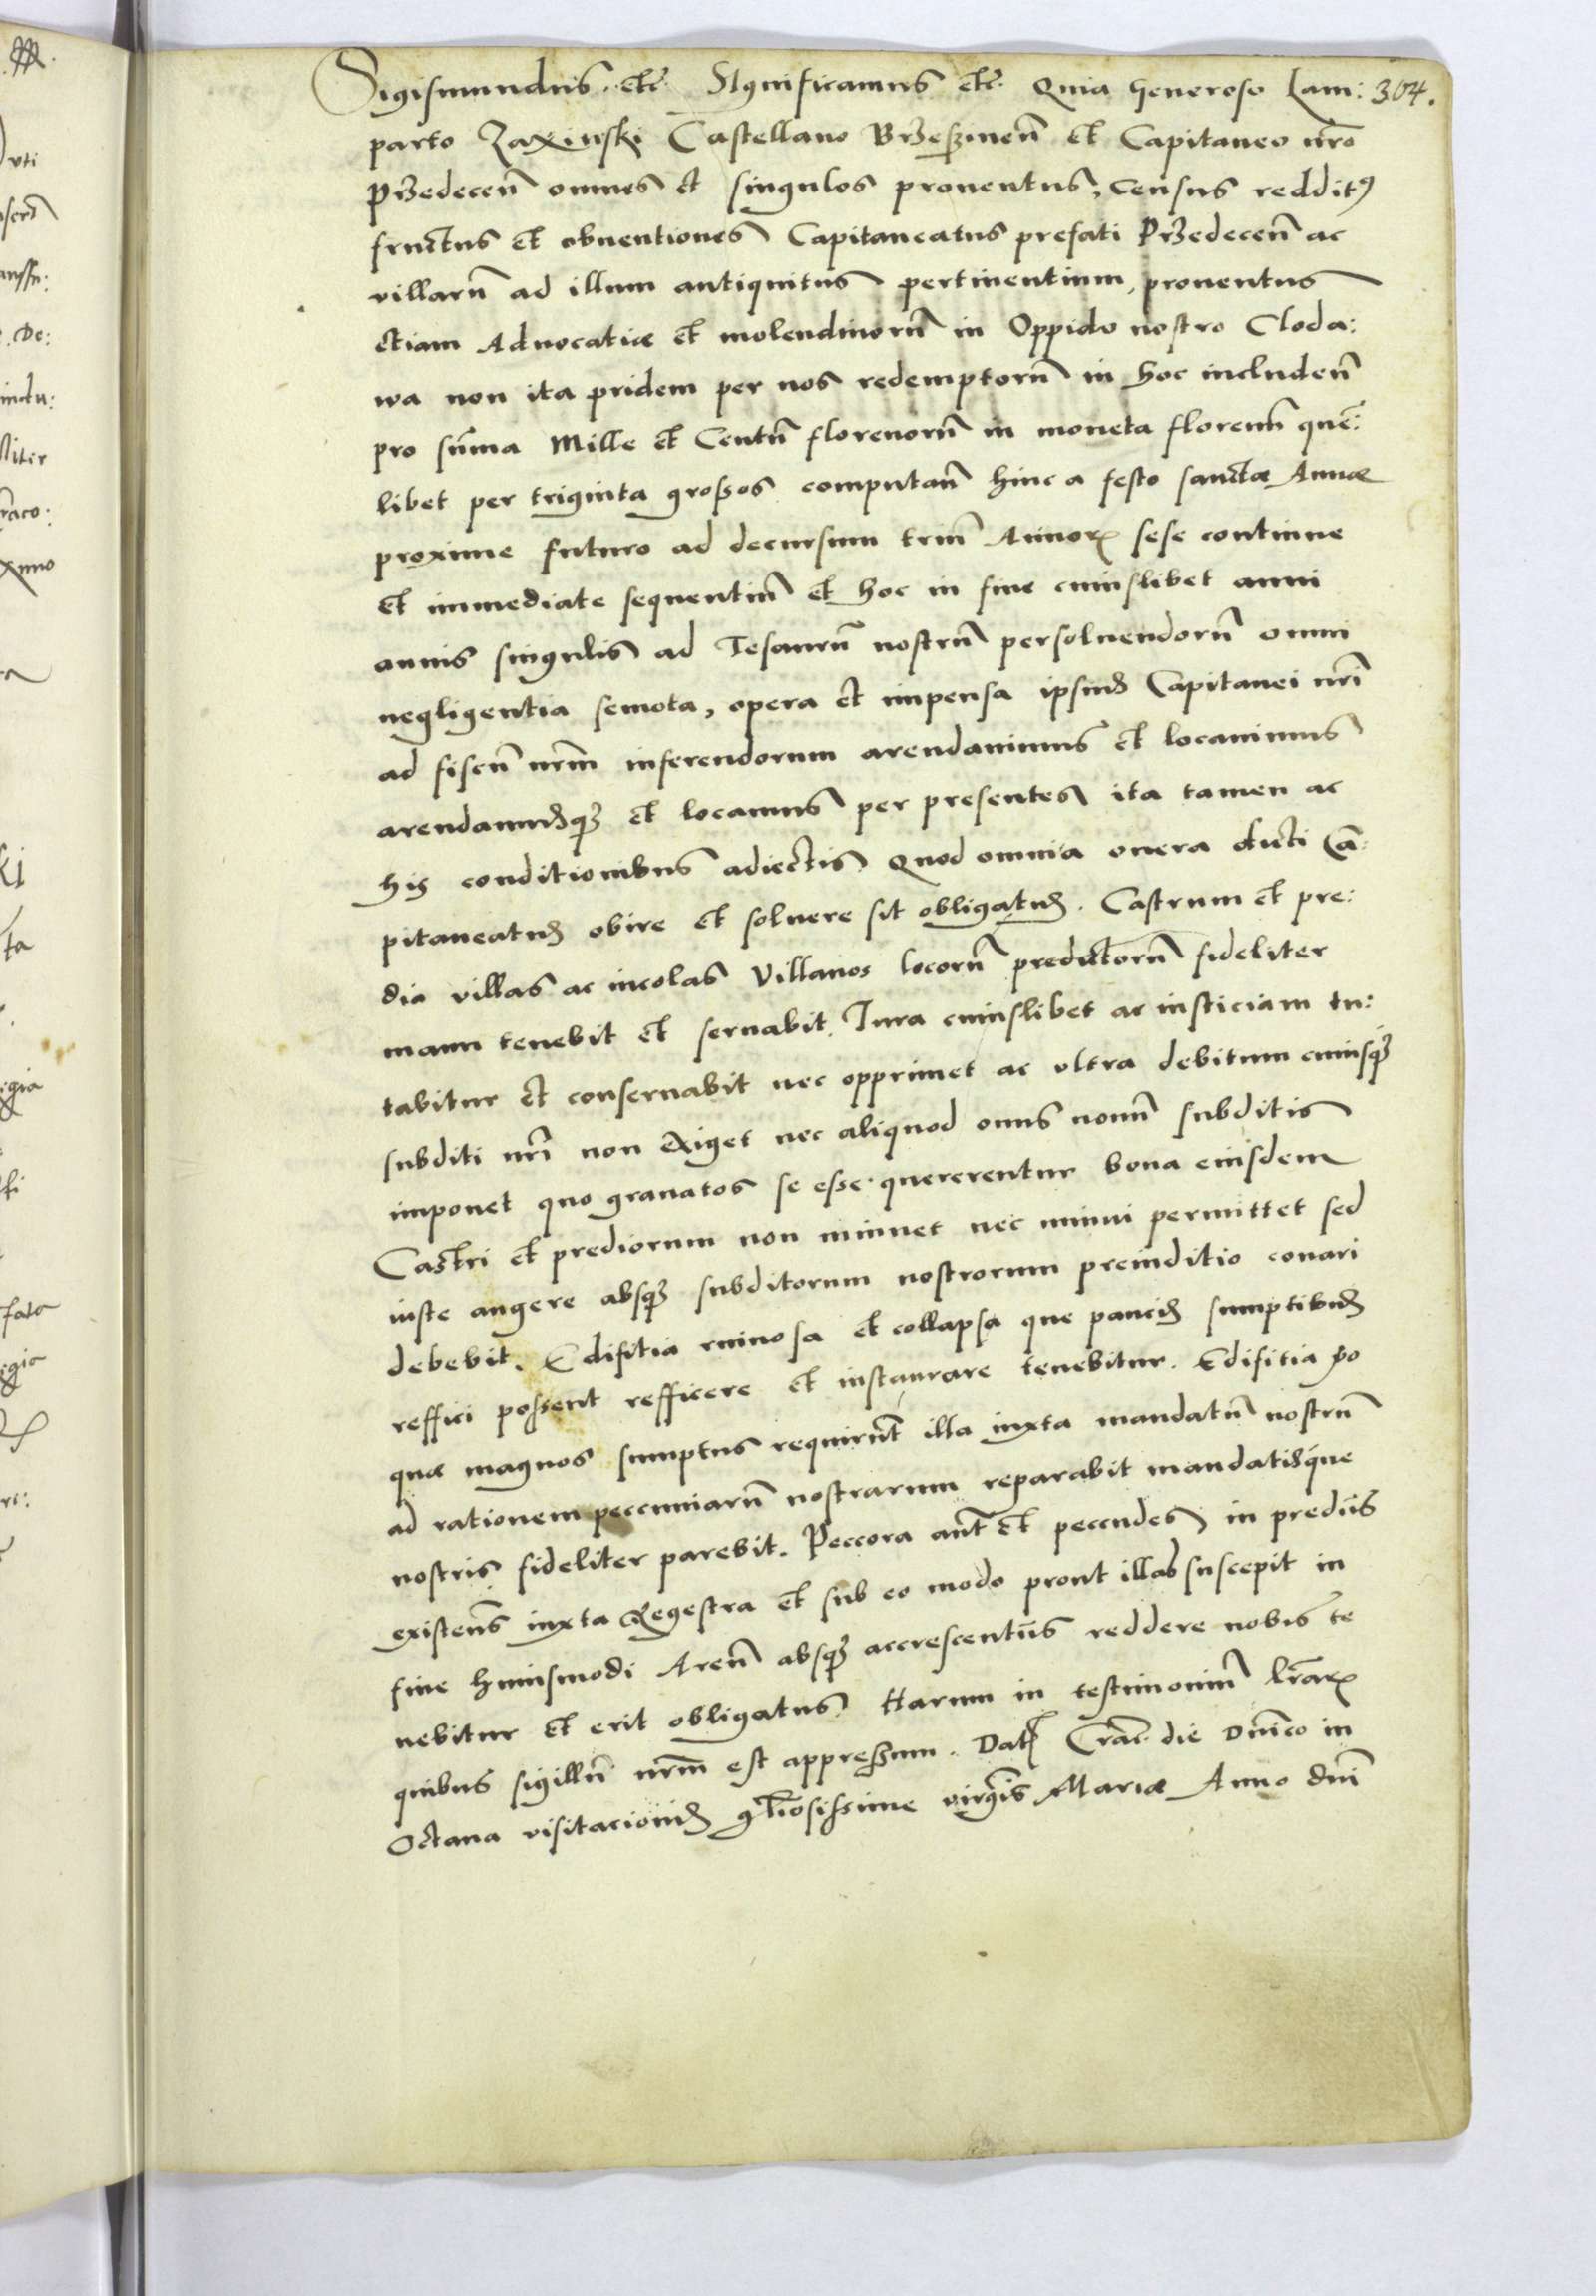 Sigismundus. etc. Significamus etc. Quia Generoso Lam: 304.
parto Zaxinski Castellano Brzeszinen̄ et Capitaneo nr̄o
Przedecen̄ omnes et singulos prouentus, Census redditꝰ
fructus et obuentiones Capitaneatus prefati Przedecen̄ ac
villarū ad illum antiquitus pertinentium, prouentus
etiam Aduocatiæ et molendinorū in Oppido nostro Cloda:
wa non ita pridem per nos redemptorū in hoc includen̄
pro sūma Mille et Centū florenorū in moneta florenū quē:
libet per triginta grossos computan̄ hinc a festo sanctæ Annæ
proxime futuro ad decursum triū Annorꝝ sese continue
et immediate sequentiū et hoc in fine cuiuslibet anni
annis singulis ad Tesaurū nostrū persoluendorū omni
negligentia semota, opera et impensa ipsius Capitanei nr̄i
ad fiscū nr̄m inferendorum arendauimus et locauimus
arendamusqꝫ et locamus per presentes ita tamen ac
his conditionibus adiectis Quod omnia onera dicti Ca:
pitaneatus obire et soluere sit obligatus. Castrum et pre:
dia villas ac incolas Villanos locorū predictorū fideliter
manu tenebit et seruabit. Iura cuiuslibet ac iusticiam tu:
tabitur et conseruabit nec opprimet ac vltra debitum cuiusqꝫ
subditi nr̄i non exiget nec aliquod onus nouū subditis
imponet quo grauatos se esse quererentur bona eiusdem
Castri et prediorum non minuet nec minui permittet sed
iuste augere absqꝫ subditorum nostrorum preiuditio conari
debebit. Edifitia ruinosa et collapsa que paucis sumptibus
reffici possent refficere et instaurare tenebitur. Edifitia ꝟo
quæ magnos sumptus requirūt illa iuxta mandatū nostrū
ad rationem peccuniarū nostrarum reparabit mandatisque
nostris fideliter parebit. Peccora aut̄ et peccudes in prediis
existen̄s iuxta Regestra et sub eo modo prout illas suscepit in
fine huiusmodi Aren̄ absqꝫ accrescentiis reddere nobis te
nebitur et erit obligatus Harum in testimoniū lr̄arꝝ
quibus sigillū nr̄m est appressum. Datꝭ Crac̄. die Dn̄ico in
Octaua visitacionis gl̄iosissime virgīs Mariæ Anno dn̄i